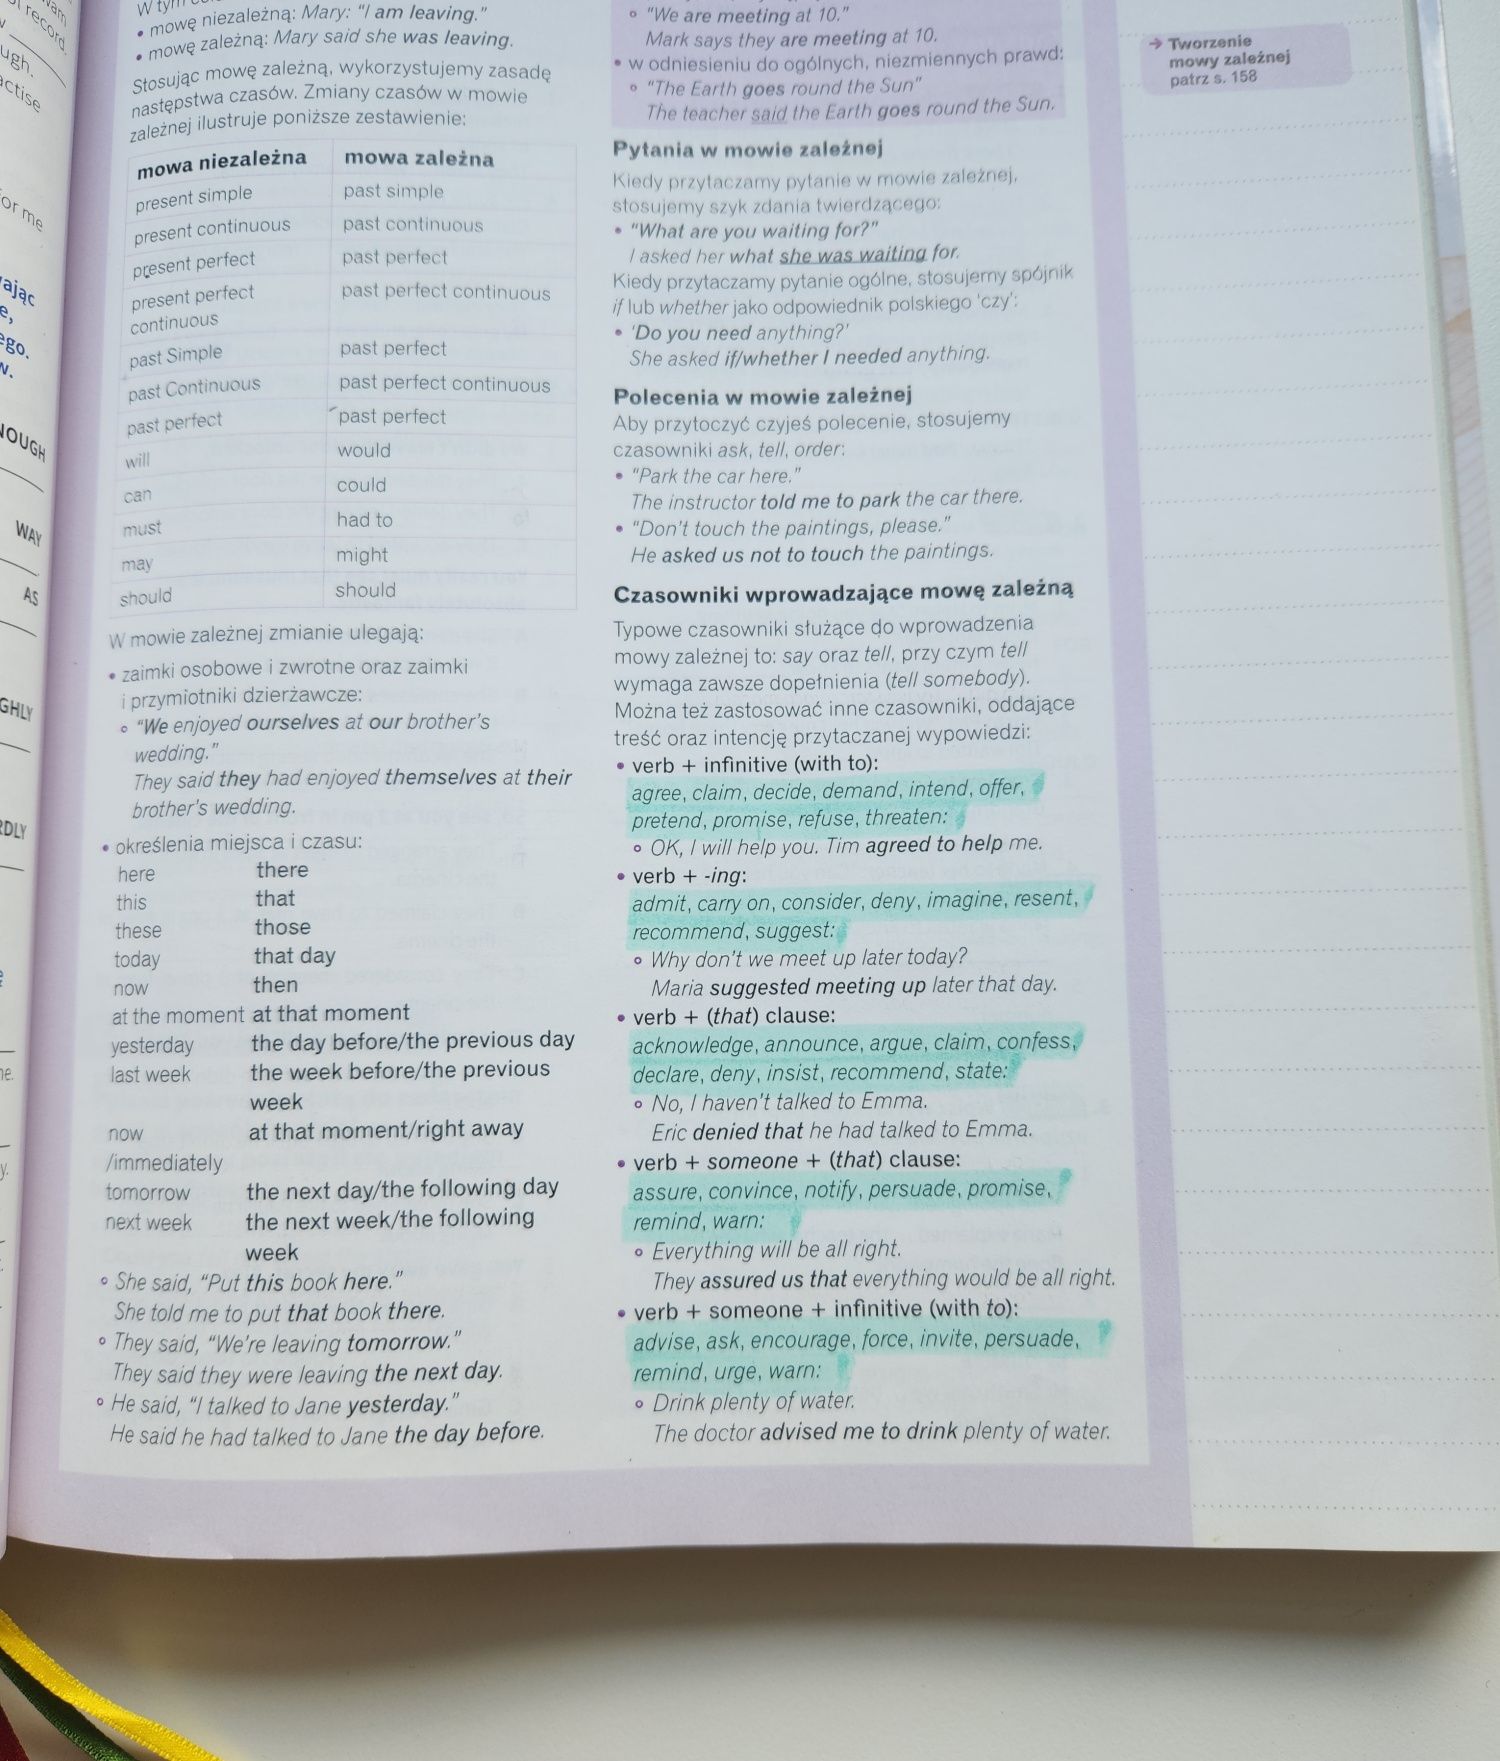 ol record.
ugh.
actise
for me
ając
e,
ego.
w.
NOUGH
WAY
AS
GHLY
RDLY
ne.
y.
W tym
• mowę niezależną: Mary: “I am leaving.”
• mowę zależną: Mary said she was leaving.
Stosując mowę zależną, wykorzystujemy zasadę
następstwa czasów. Zmiany czasów w mowie
zależnej ilustruje poniższe zestawienie:
mowa niezależna mowa zależna
present simple past simple
present continuous past continuous
present perfect past perfect
present perfect past perfect continuous
continuous
past Simple past perfect
past Continuous past perfect continuous
past perfect past perfect
will would
can could
must had to
may might
should should
W mowie zależnej zmianie ulegają:
• zaimki osobowe i zwrotne oraz zaimki
i przymiotniki dzierżawcze:
“We enjoyed ourselves at our brother’s
wedding.”
They said they had enjoyed themselves at their
brother’s wedding.
• określenia miejsca i czasu:
here there
this that
these those
today that day
now then
at the moment at that moment
yesterday the day before/the previous day
last week the week before/the previous
week
now at that moment/right away
/immediately
tomorrow the next day/the following day
next week the next week/the following
week
She said, “Put this book here.”
She told me to put that book there.
They said, “We’re leaving tomorrow.”
They said they were leaving the next day.
He said, “I talked to Jane yesterday.”
He said he had talked to Jane the day before.
“We are meeting at 10.”
Mark says they are meeting at 10.
• w odniesieniu do ogólnych, niezmiennych prawd:
“The Earth goes round the Sun”
The teacher said the Earth goes round the Sun.
Pytania w mowie zależnej
Kiedy przytaczamy pytanie w mowie zależnej,
stosujemy szyk zdania twierdzącego:
• “What are you waiting for?”
I asked her what she was waiting for.
Kiedy przytaczamy pytanie ogólne, stosujemy spójnik
if lub whether jako odpowiednik polskiego ‘czy’:
• ‘Do you need anything?’
She asked if/whether I needed anything.
Polecenia w mowie zależnej
Aby przytoczyć czyjeś polecenie, stosujemy
czasowniki ask, tell, order:
• “Park the car here.”
The instructor told me to park the car there.
• “Don’t touch the paintings, please.”
He asked us not to touch the paintings.
Czasowniki wprowadzające mowę zależną
Typowe czasowniki służące do wprowadzenia
mowy zależnej to: say oraz tell, przy czym tell
wymaga zawsze dopełnienia (tell somebody).
Można też zastosować inne czasowniki, oddające
treść oraz intencję przytaczanej wypowiedzi:
• verb + infinitive (with to):
agree, claim, decide, demand, intend, offer,
pretend, promise, refuse, threaten:
OK, I will help you. Tim agreed to help me.
• verb + -ing:
admit, carry on, consider, deny, imagine, resent,
recommend, suggest:
Why don’t we meet up later today?
Maria suggested meeting up later that day.
• verb + (that) clause:
acknowledge, announce, argue, claim, confess,
declare, deny, insist, recommend, state:
No, I haven’t talked to Emma.
Eric denied that he had talked to Emma.
• verb + someone + (that) clause:
assure, convince, notify, persuade, promise,
remind, warn:
Everything will be all right.
They assured us that everything would be all right.
• verb + someone + infinitive (with to):
advise, ask, encourage, force, invite, persuade,
remind, urge, warn:
Drink plenty of water.
The doctor advised me to drink plenty of water.
→ Tworzenie
mowy zależnej
patrz s. 158